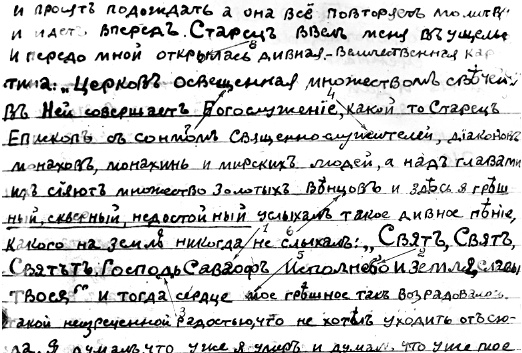 и просятъ подождать а она всё повторяетъ молитву
и идетъ впередъ. Старецъ ввелъ меня въ ущелье
и передо мной открылась дивная-величественная кар
тина: „Церковъ освещенная множествомъ свѣчей
въ Ней совершаетъ Богослуженіе, какой то Старецъ
Епископъ съ сонмомъ Священнослужителей, діаконовъ
монаховъ, монахинь и мирскихъ людей, а надъ главами
ихъ сіяютъ множество золотыхъ Вѣнцовъ и здѣсь я грѣш
ный, скверный, недостойный услыхалъ такое дивное пѣніе,
какого на землѣ никогда не слыхалъ: „Святъ, Святъ,
Святъ Господь Саваофъ Исполнь Небо и Земля славы
твоея" и тогда сердце мое грѣшное такъ возрадовалось
такой неизреченной радостью, что не хотѣлъ уходить отъсю-
да. Я думалъ, что уже я умеръ и думалъ что уже мое